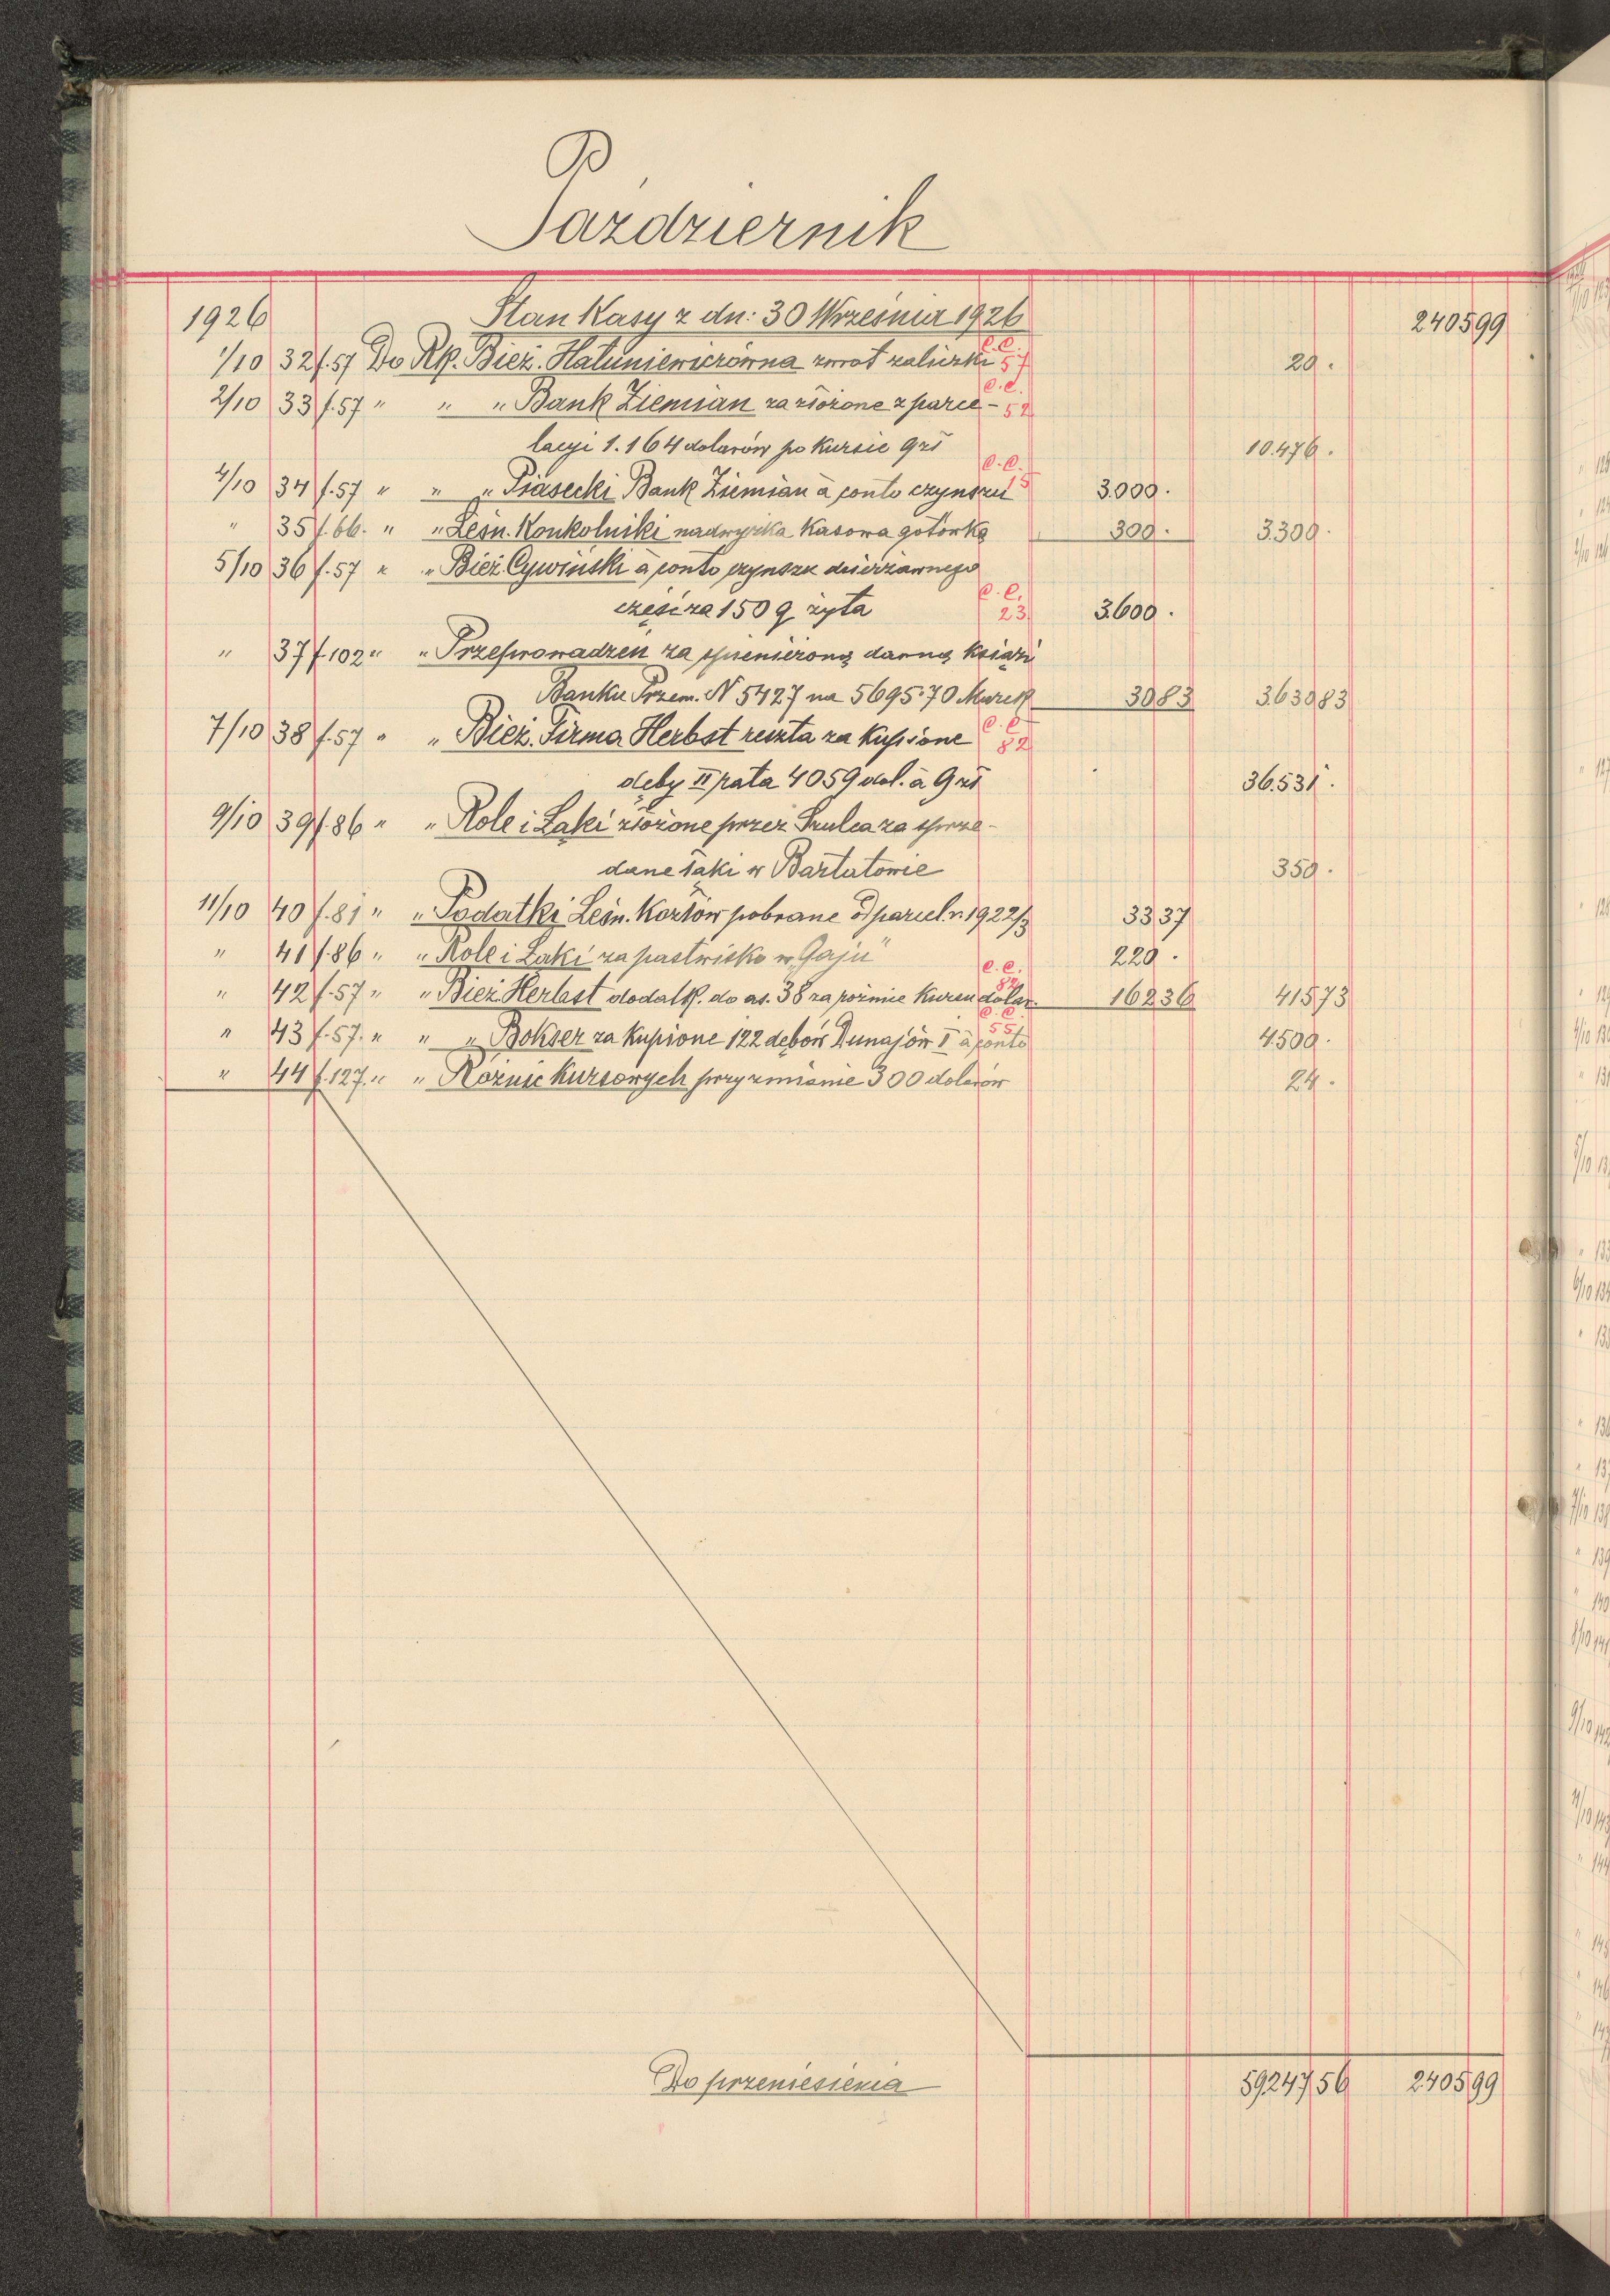 Październik
1926 Stan Kasy z dn: 30 Września 1926 2405 99
1/10 32 f.57 Do Rk. Bież. Hatuniewiczówna zwrot zaliczki C.C. 57 20 .
2/10 33 f.57 " " " Bank Ziemian za złożone z parce- C.C. 52
lacyi 1.164 dolarów po kursie 9 zł 10.476 .
4/10 34 f.57 " " " Piasecki Bank Ziemian à conto czynszu C.C. 15 3.000 .
" 35 f.66. " " Leśn. Konkolniki nadwyżka Kasowa gotówką 300 . 3.300 .
5/10 36 f.57 " " Bież Cywiński à conto czynszu dzierżawnego
części za 150 q żyta C.C. 23. 3.600 .
" 37 f.102 " " Przeprowadzeń za spieniężoną dawną książ.
Banku Przem. N 5427 na 5695·70 Marek 30 83 3.630 83
7/10 38 f.57 " " Bież. Firma Herbst reszta za kupione C.C. 82
dęby II rata 4059 dol. à 9 zł 36.531 .
9/10 39 f.86 " " Role i Łąki złożone przez Szulca za sprze-
dane łąki w Bartatowie 350 .
11/10 40 f.81 " " Podatki Leśn. Kozłów pobrane od parcel. r. 1922/3 33 37
" 41 f.86 " " Role i Łąki za pastwisko w "Gaju" 220 .
" 42 f.57 " " Bież Herbst dodatk. do as. 38 za różnice Kursu dolar. C.C. 82 162 36 415 73
" 43 f.57. " " " Bokser za Kupione 122 dębów Dunajów I à conto C.C. 55 4.500 .
" 44 f.127. " " Różnic Kursowych przy zmianie 300 dolarów 24 .
Do przeniesienia 59247 56 2405 99